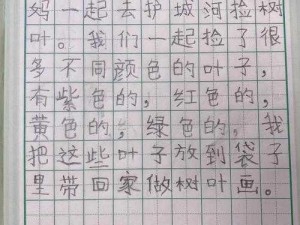 妈一起去护城河捡树
叶。我们一起捡了很
多不同颜色的叶子，
有紫色的，红色的，
黄色的，绿色的。我
把这些叶子放到袋子
里带回家做树叶画。